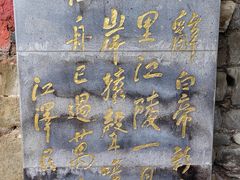 辭白帝彩
里江陵一日
岸猿聲啼
舟已過萬
江澤民